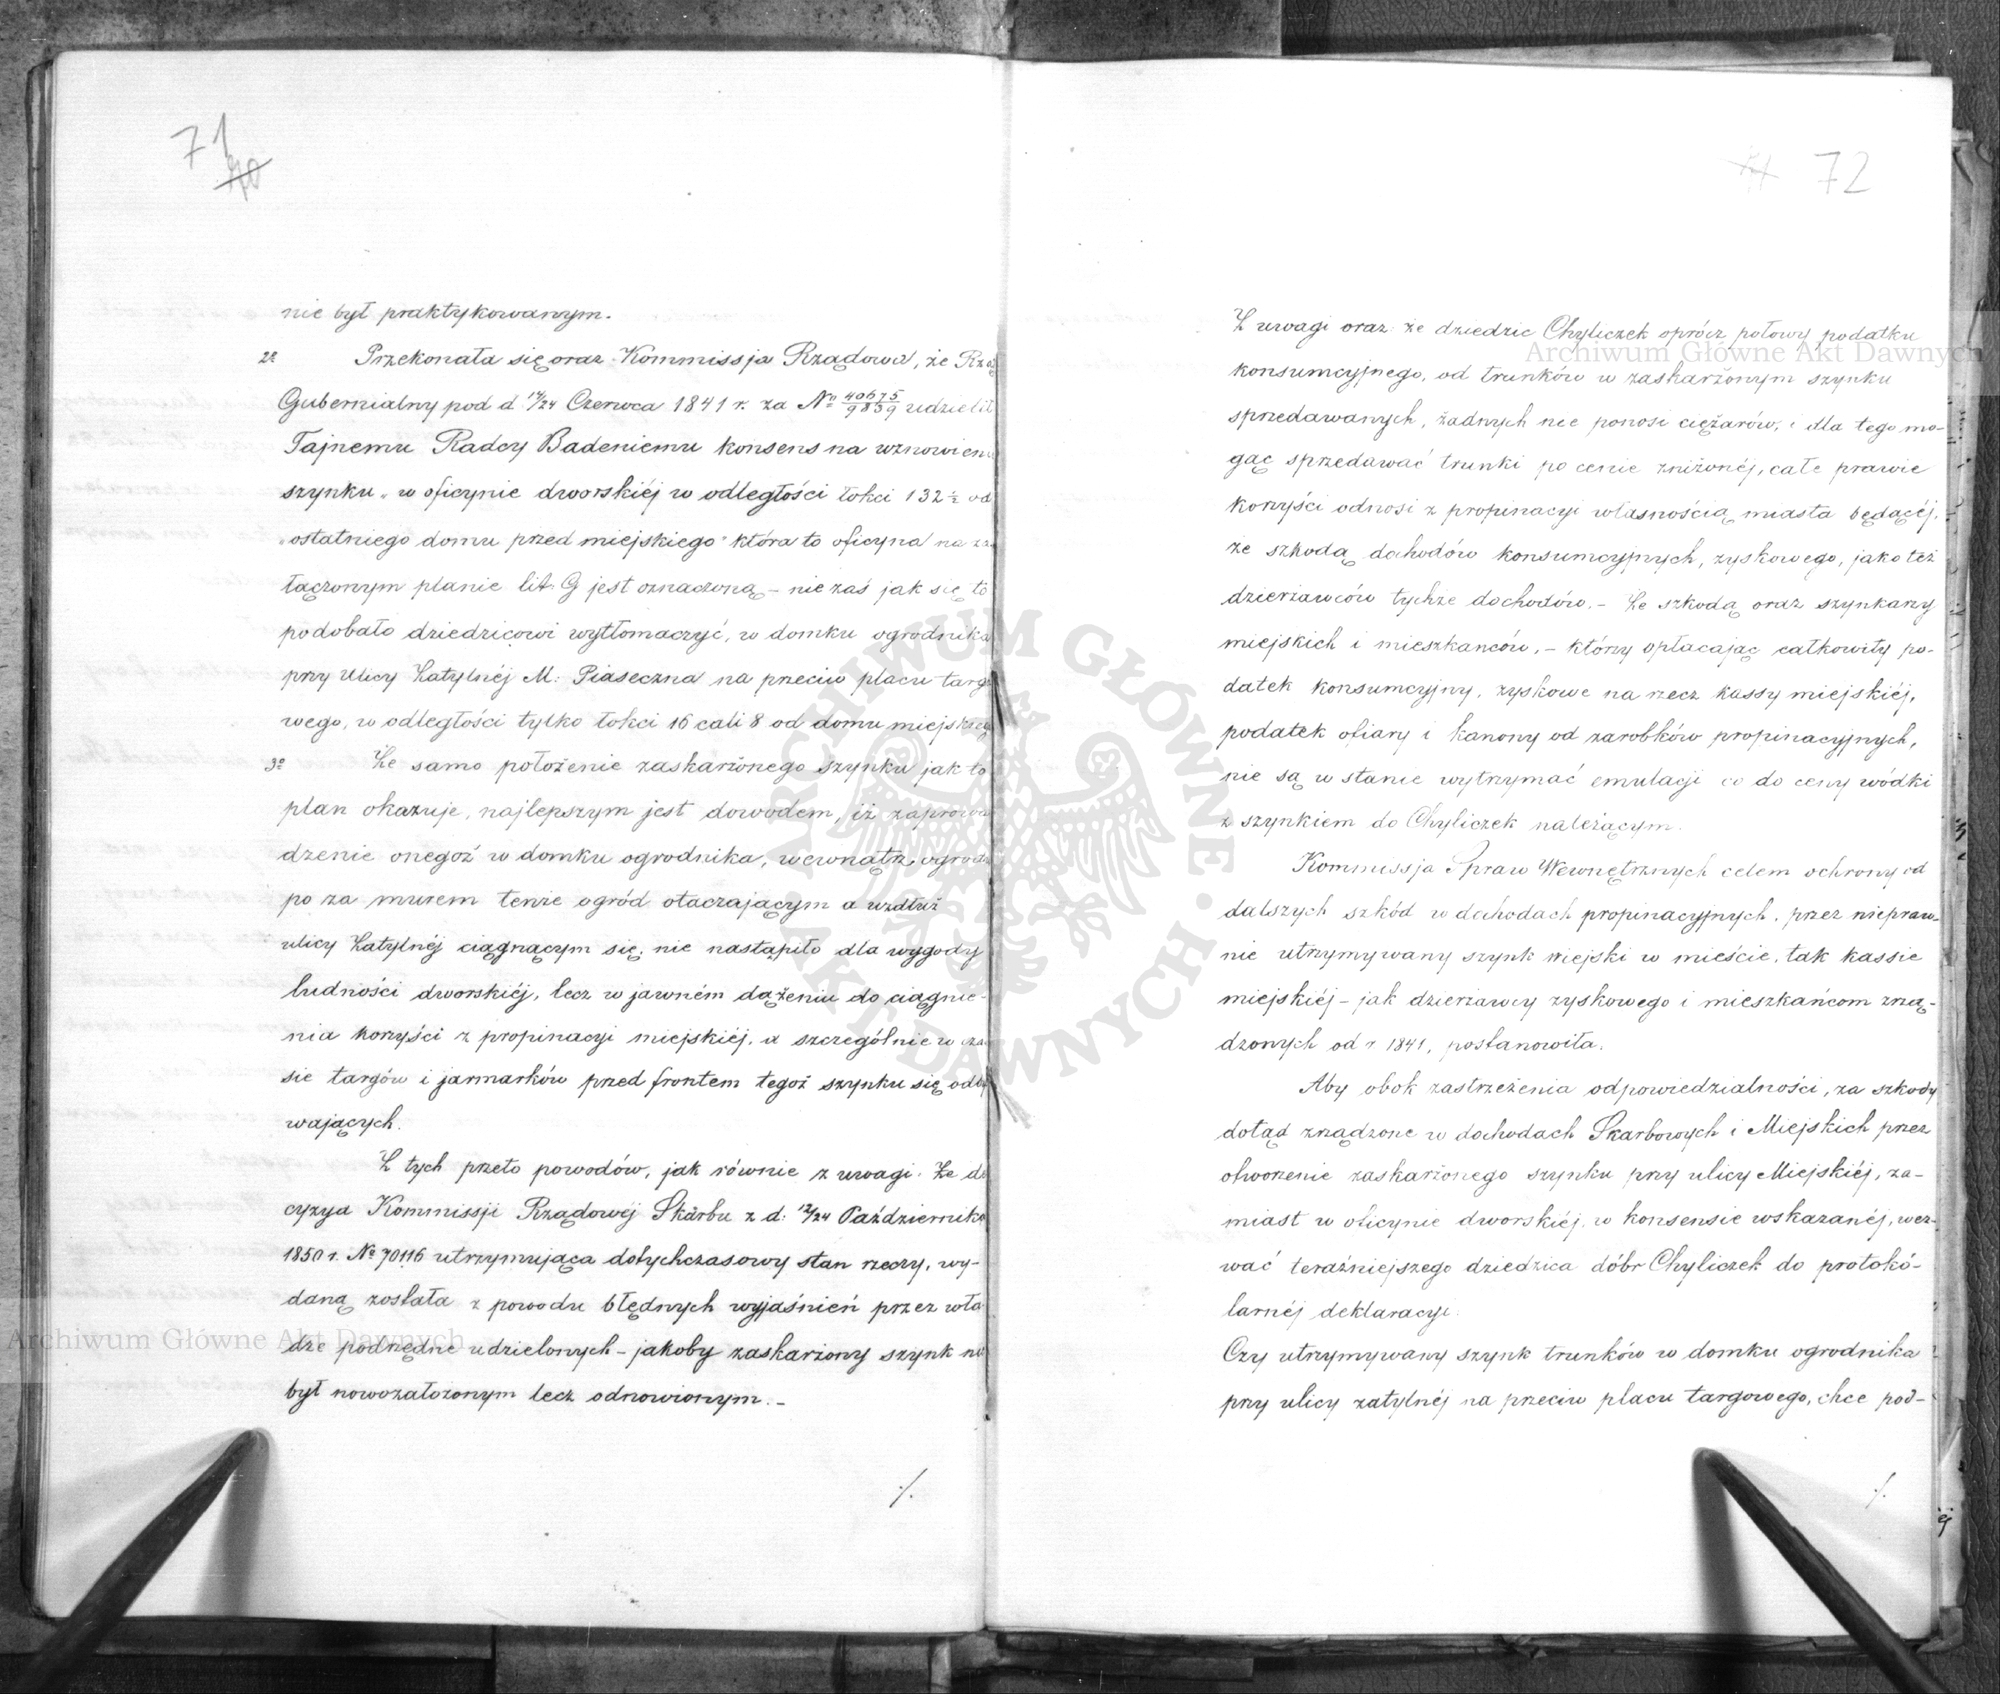 71
nie był praktykowanym.
2º Przekonała się oraz Kommissja Rządowa, że Rząd
Gubernialny pod d 12/24 Czerwca 1841 r. za Nº 40675/9859 udzielił
Tajnemu Radcy Badeniemu konsens na wznowienie
szynku „w oficynie dworskiéj w odległości łokci 132 ½ od
„ostatniego domu przed miejskiego" która to oficyna na za
łączonym planie lit. G jest oznaczoną – nie zaś jak się to
podobało dziedzicowi wytłomaczyć, w domku ogrodnika
przy Ulicy Zatylnéj M: Piaseczna na przeciw placu targo
wego, w odległości tylko łokci 16 cali 8 od domu miejskiego
3º Że samo położenie zaskarżonego szynku jak to
plan okazuje, najlepszym jest dowodem, iż zaprowa
dzenie onegoż w domku ogrodnika, wewnątrz ogrodu
po za murem tenże ogród otaczającym a wzdłuż
ulicy Zatylnéj ciągnącym się, nie nastąpiło dla wygody
ludności dworskiéj, lecz w jawném dążeniu do ciągnie-
nia korzyści z propinacyi miejskiéj, a szczególnie w cza
sie targów i jarmarków przed frontem tegoż szynku się odby
wających.
Z tych przeto powodów, jak równie z uwagi: Że de
cyzya Kommissji Rządowéj Skarbu z d: 12/24 Października
1850 r. Nº 70116 utrzymująca dotychczasowy stan rzeczy, wy-
daną została z powodu błędnych wyjaśnień przez wła
dze podrzędne udzielonych – jakoby zaskarżony szynk nie
był nowozałożonym lecz odnowionym. –
./.
72
Z uwagi oraz: że dziedzic Chyliczek oprócz połowy podatku
konsumcyjnego, od trunków w zaskarżonym szynku
sprzedawanych, żadnych nie ponosi ciężarów, i dla tego mo-
gąc sprzedawać trunki po cenie zniżonéj, całe prawie
korzyści odnosi z propinacyi własnością miasta będącéj,
ze szkodą dochodów konsumcyjnych, zyskowego, jako też
dzierżawców tychże dochodów. – Ze szkodą oraz szynkarzy
miejskich i mieszkańców, – którzy opłacając całkowity po-
datek konsumcyjny, zyskowe na rzecz kassy miejskiéj,
podatek ofiary i kanony od zarobków propinacyjnych,
nie są w stanie wytrzymać emulacji co do ceny wódki
z szynkiem do Chyliczek należącym.
Kommissja Spraw Wewnętrznych celem ochrony od
dalszych szkód w dochodach propinacyjnych, przez niepraw-
nie utrzymywany szynk wiejski w mieście, tak kassie
miejskiéj – jak dzierżawcy zyskowego i mieszkańcom zrzą-
dzonych od r 1841, postanowiła.
Aby obok zastrzeżenia odpowiedzialności, za szkody
dotąd zrządzone w dochodach Skarbowych i Miejskich przez
otworzenie zaskarżonego szynku przy ulicy Miejskiéj, za-
miast w oficynie dworskiéj, w konsensie wskazanéj, wez-
wać teraźniejszego dziedzica dóbr Chyliczek do protokó-
larnéj deklaracyi:
Czy utrzymywany szynk trunków w domku ogrodnika
przy ulicy zatylnéj na przeciw placu targowego, chce pod-
./.
Archiwum Główne Akt Dawnych
Archiwum Główne Akt Dawnych
ARCHIWUM GŁÓWNE AKT DAWNYCH